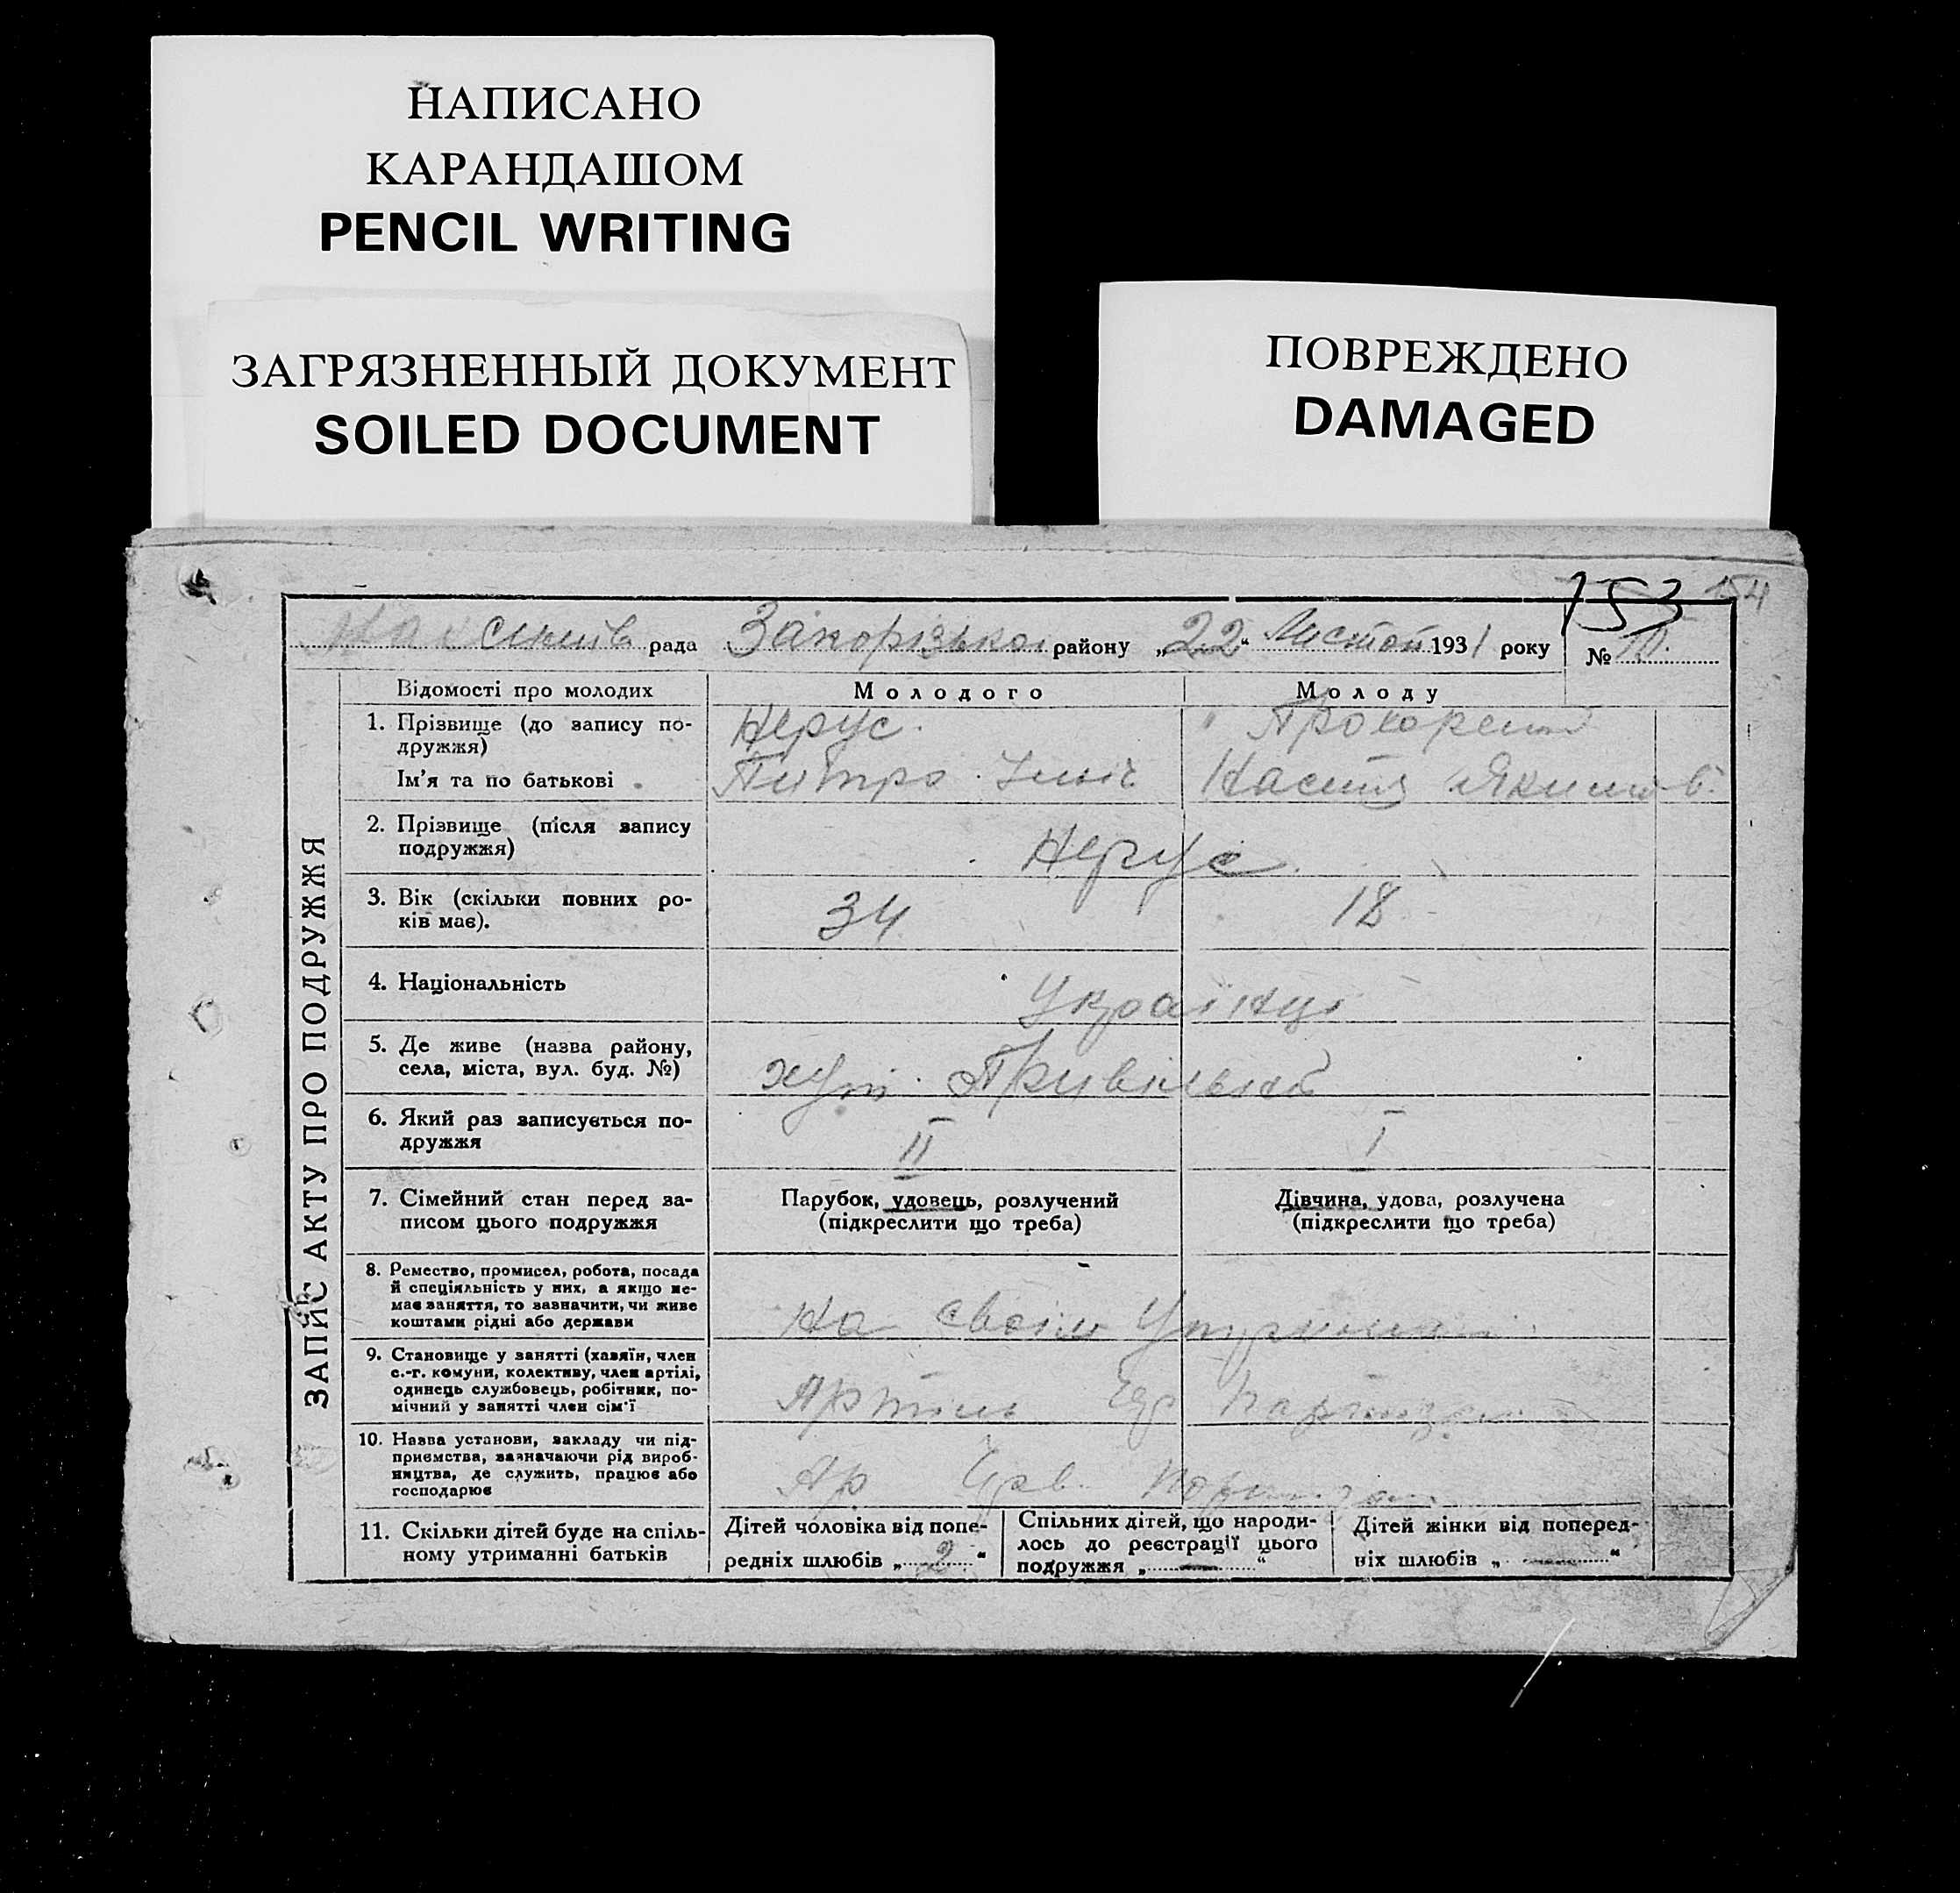 НАПИСАНО
КАРАНДАШОМ
PENCIL WRITING
ЗАГРЯЗНЕННЫЙ ДОКУМЕНТ
SOILED DOCUMENT
ПОВРЕЖДЕНО
DAMAGED
153
рада Запорізького району „22“ Листоп 1931 року №
ЗАПИС АКТУ ПРО ПОДРУЖЖЯ
Відомості про молодих Молодого Молоду
1. Прізвище (до запису по-
дружжя)
Нерус.
Ім'я та по батькові
Питро Ілліч Настя Якимов.
2. Прізвище (після запису
подружжя)
Нерус
3. Вік (скільки повних ро-
ків має).
34 18
4. Національність
Українці
5. Де живе (назва району,
села, міста, вул. буд. №)
хут. Привільний
6. Який раз записується по-
дружжя
II I
7. Сімейний стан перед за-
писом цього подружжя
Парубок, удовець, розлучений
(підкреслити що треба)
Дівчина, удова, розлучена
(підкреслити що треба)
8. Ремество, промисел, робота, посада
й спеціяльність у них, а якщо не-
має заняття, то зазначити, чи живе
коштами рідні або держави
На своїм утриманні
9. Становище у занятті (хазяїн, член
с.-г. комуни, колективу, член артілі,
одинець службовець, робітник, по-
мічний у занятті член сім'ї
Артіль Чер Партизан
10. Назва установи, закладу чи під-
приємства, зазначаючи рід вироб-
ництва, де служить, працює або
господарює
Ар Черв. Партизан
11. Скільки дітей буде на спіль-
ному утриманні батьків
Дітей чоловіка від попе-
редніх шлюбів „2“
Спільних дітей, що народи-
лось до реєстрації цього
подружжя „—“
Дітей жінки від поперед-
ніх шлюбів „—“